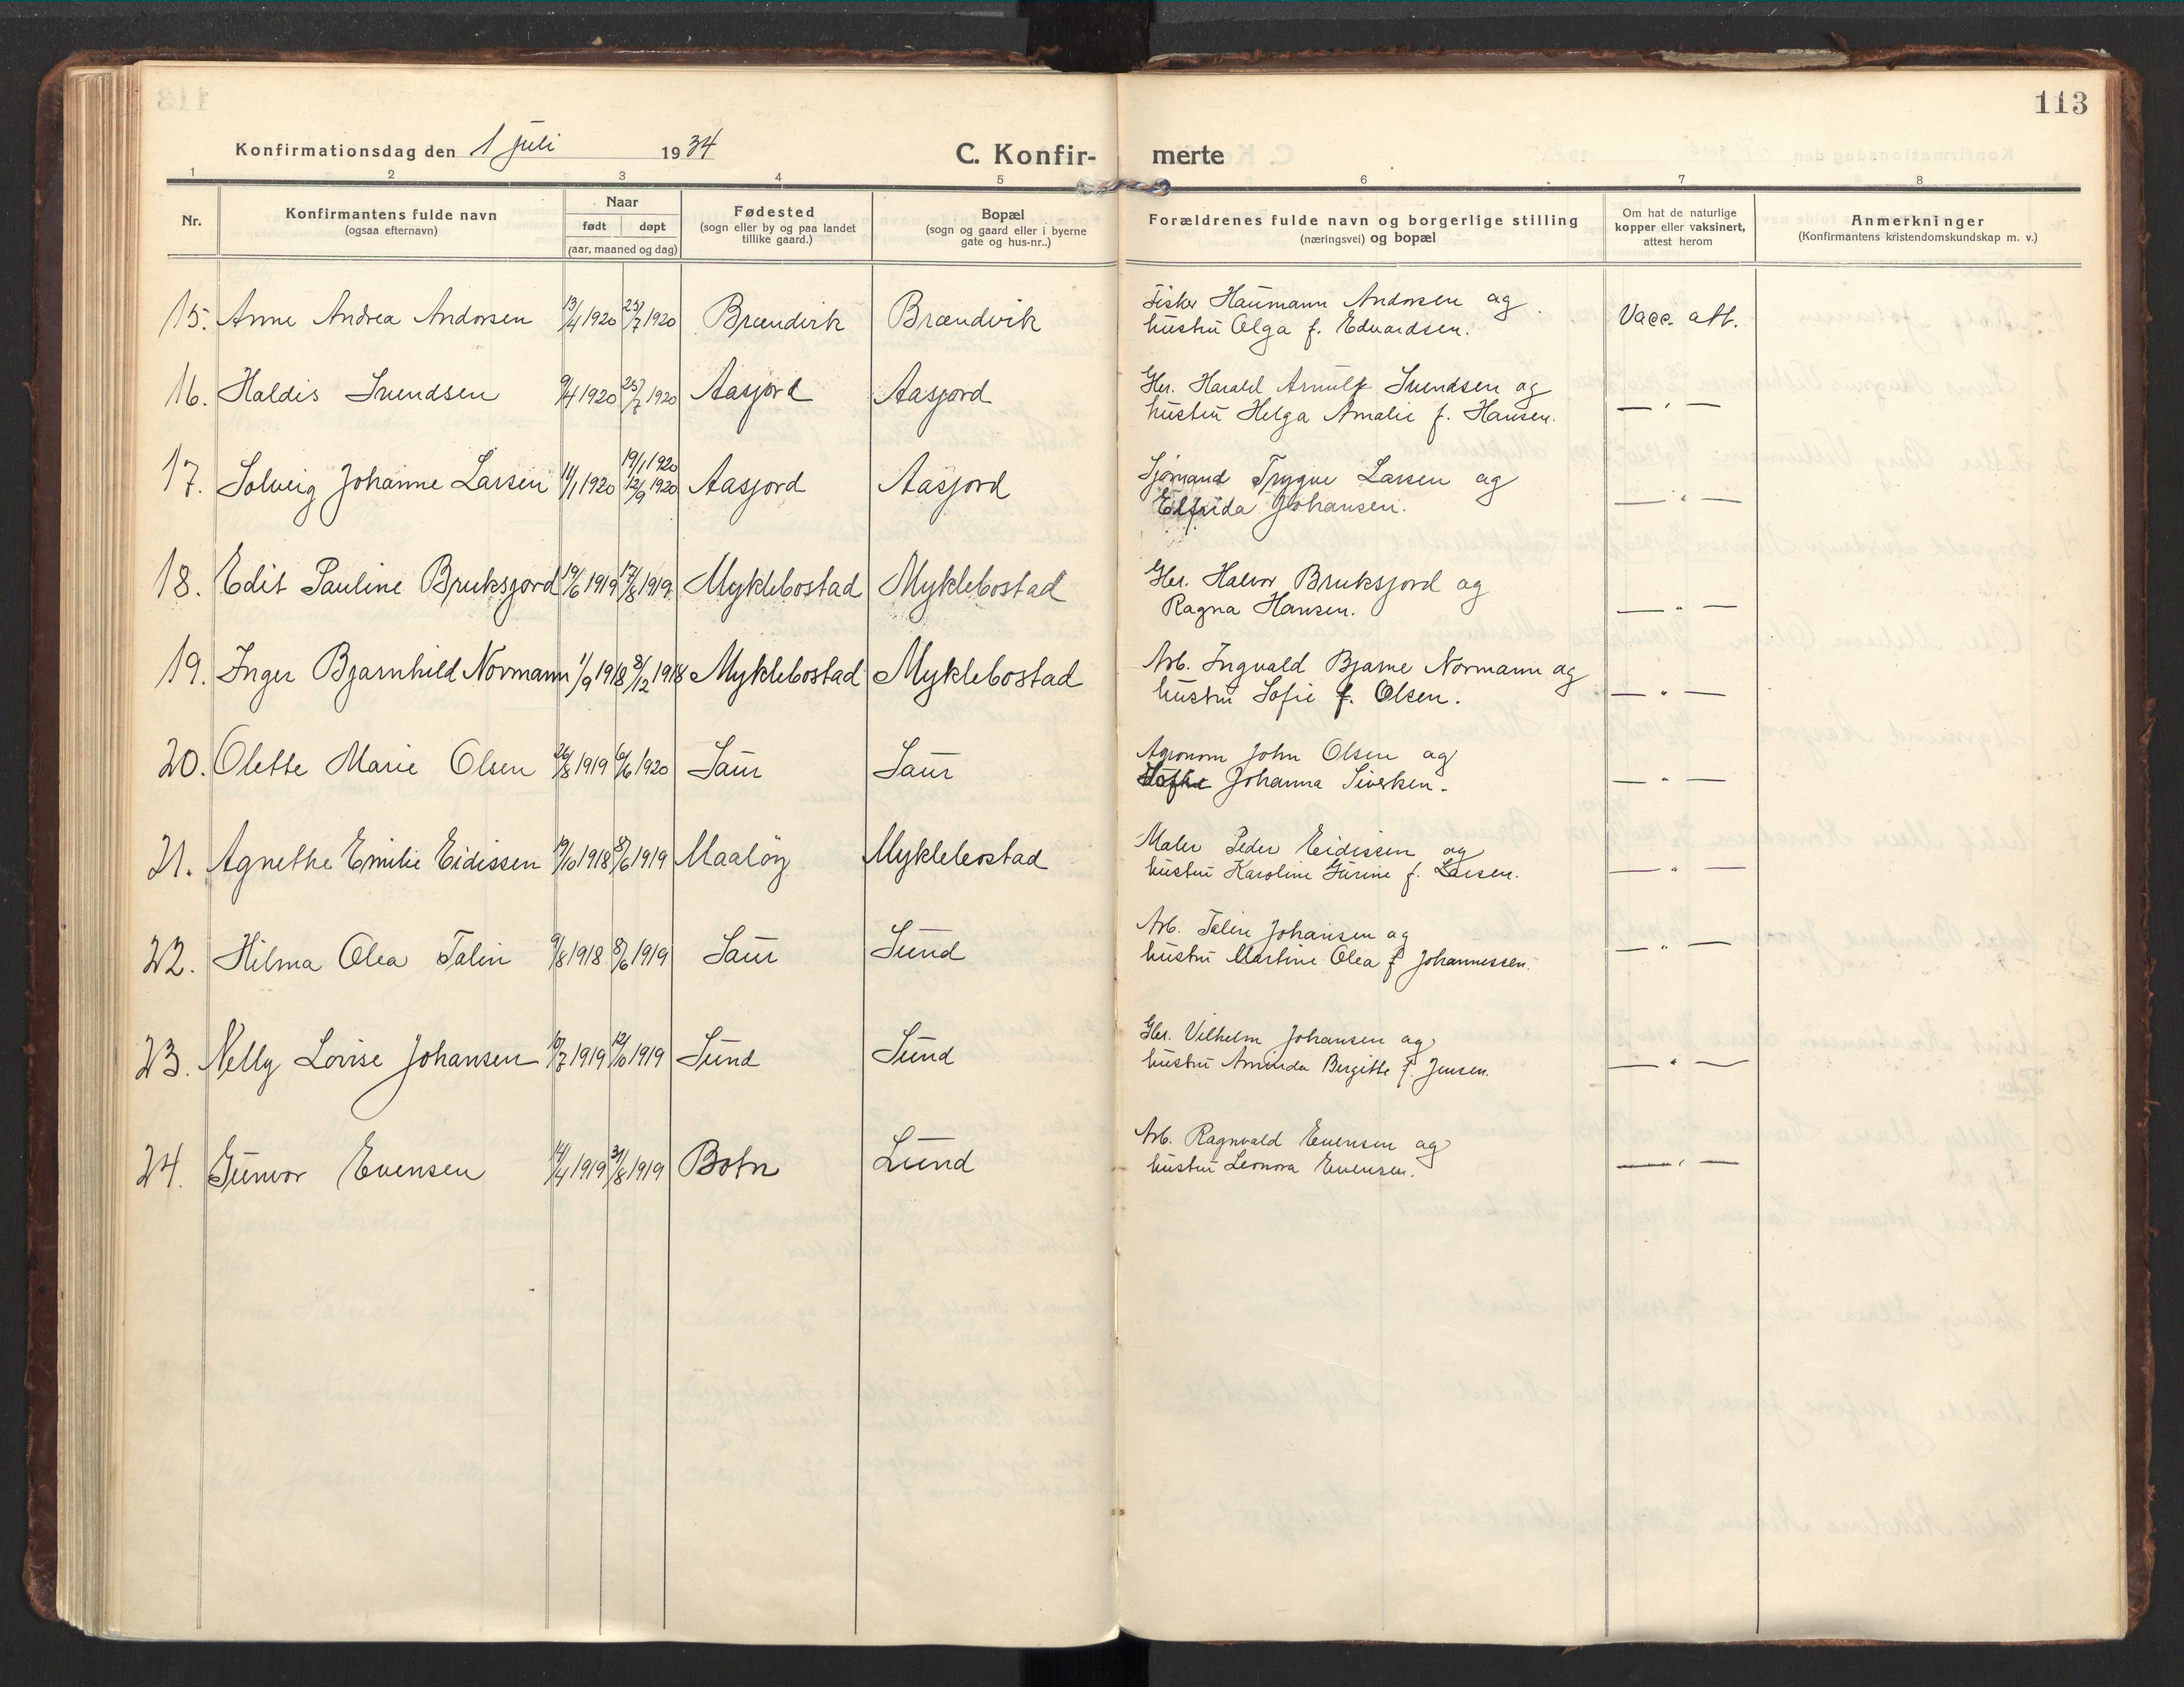 113
Konfirmationsdag den 1 juli 1934
C. Konfirmerte
1 2 3 4 5 6 7 8
Nr.
Konfirmantens fulde navn
(ogsaa efternavn)
Naar
født døpt
(aar, maaned og dag)
Fødested
(sogn eller by og paa landet
tillike gaard.)
Bopæl
(sogn og gaard eller i byerne
gate og hus-nr..)
Forældrenes fulde navn og borgerlige stilling
(næringsvei) og bopæl
Om hat de naturlige
kopper eller vaksinert,
attest herom
Anmerkninger
(Konfirmantens kristendomskundskap m. v.)
15. Anne Andrea Andorsen 13/4 1920 25/7 1920 Brændvik Brændvik Fisker Haumann Andorsen og
hustru Olga f. Edvardsen. Vacc. att.
16. Haldis Svendsen 9/4 1920 25/7 1920 Aasjord Aasjord Gbr. Harald Arnulf Svendsen og
hustru Helga Amalie f. Hansen. — " —
17. Solveig Johanne Larsen 14/1 1920 19/1 1920
12/9 1920 Aasjord Aasjord Sjømand Trygve Larsen og
Elfrida Johansen. — " —
18. Edit Pauline Bruksjord 19/6 1919 17/8 1919 Myklebostad Myklebostad Gbr. Halvor Bruksjord og
Ragna Hansen. — " —
19. Inger Bjarnhild Normann 1/9 1918 8/12 1918 Myklebostad Myklebostad Arb. Ingvald Bjarne Normann og
hustru Sofie f. Olsen. — " —
20. Olette Marie Olsen 26/8 1919 6/6 1920 Saur Saur Agronom John Olsen og
Johanna Siverten. — " —
21. Agnethe Emilie Eidissen 19/10 1918 8/6 1919 Maaløy Myklebostad Maler Peder Eidissen og
hustru Karoline Gurine f. Larsen. — " —
22. Hilma Olea Talin 9/8 1918 8/6 1919 Saur Sund Arb. Johansen og
hustru Martine Olea f Johannessen. — " —
23. Nelly Lovise Johansen 10/7 1919 12/10 1919 Sund Sund Gbr. Vilhelm Johansen og
hustru Aminda Bergitte f. Jensen. — " —
24. Gunvor Evensen 14/4 1919 31/8 1919 Botn Lund Arb. Ragnvald Evensen og
hustru Leonora Evensen. — " —